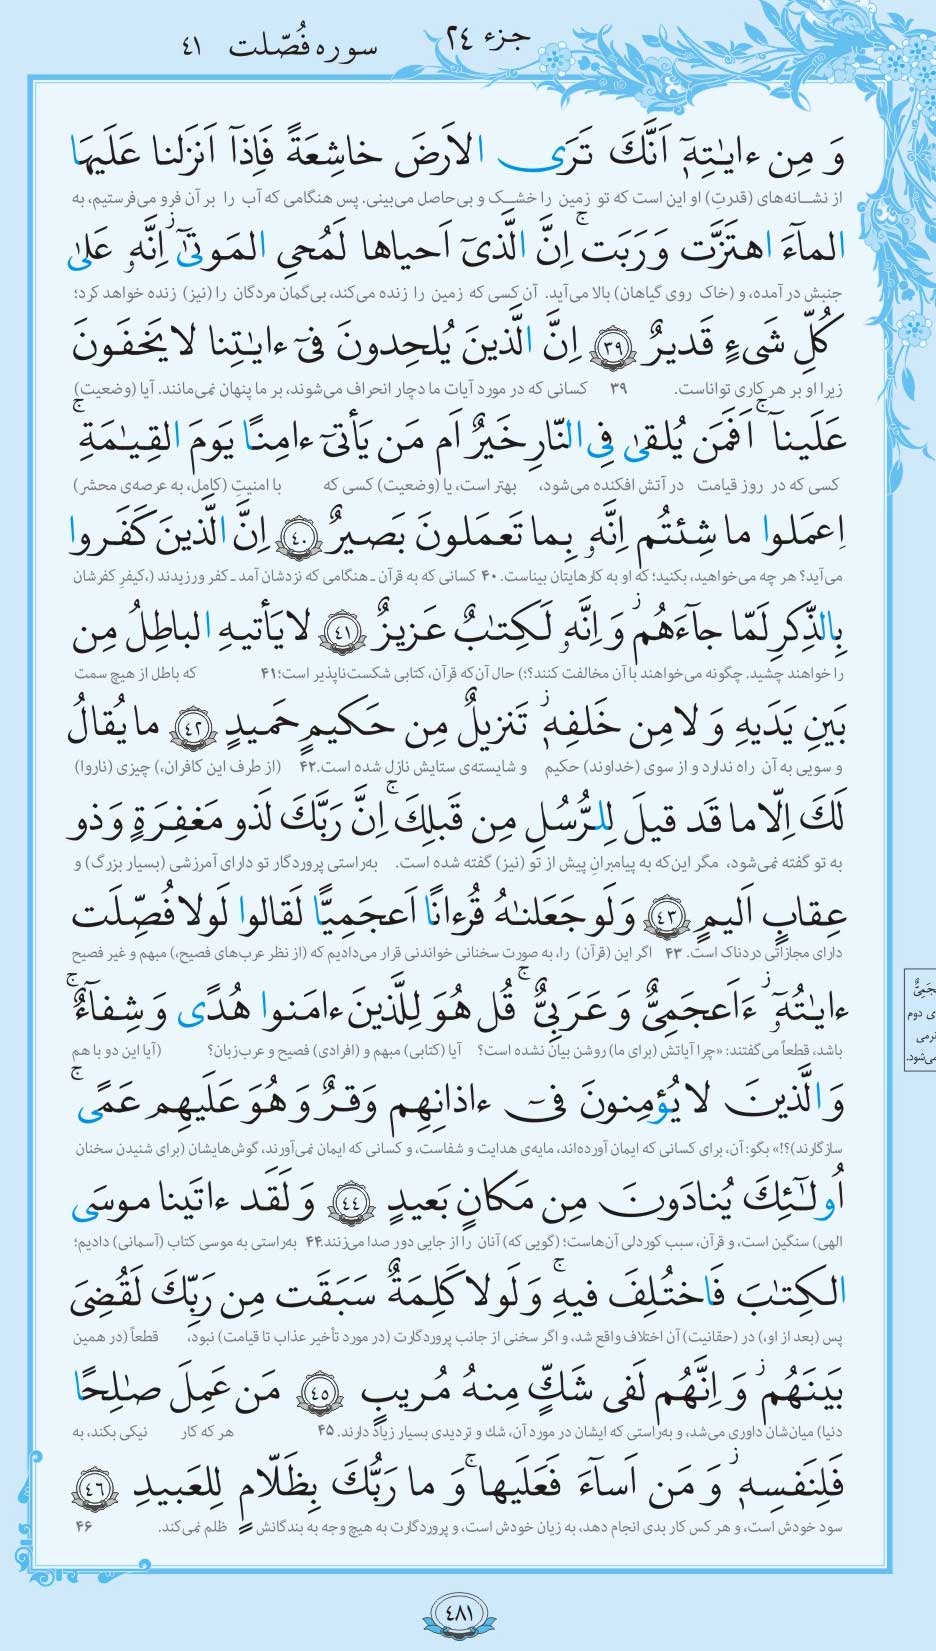 جزء ٢٤
سوره فُصّلت ٤١
وَ مِن ءايـٰتِهِۦٓ اَنَّكَ تَرَى الاَرضَ خاشِعَةً فَاِذآ اَنزَلنا عَلَيهَا
از نشــانه‌های (قدرتِ) او این است که تو زمین را خشــک و بی‌حاصل می‌بینی. پس هنگامی که آب را بر آن فرو می‌فرستیم، به
المآءَ اهتَزَّت وَ رَبَت ۚ اِنَّ الَّذىٓ اَحياها لَمُحىِ المَوتىٰٓ ۚ اِنَّهُۥ عَلىٰ
جنبش در آمده، و (خاک روی گیاهان) بالا می‌آید. آن کسی که زمین را زنده می‌کند، بی‌گمان مردگان را (نیز) زنده خواهد کرد؛
كُلِّ شَىءٍ قَديرٌ ﴿٣٩﴾ اِنَّ الَّذينَ يُلحِدونَ فىٓ ءايـٰتِنا لا يَخفَونَ
زیرا او بر هر کاری تواناست. ۳۹ کسانی که در مورد آیات ما دچار انحراف می‌شوند، بر ما پنهان نمی‌مانند. آیا (وضعیت)
عَلَينآ ۚ اَفَمَن يُلقىٰ فِى النّارِ خَيرٌ اَم مَن يَأتىٓ ءامِنًا يَومَ القِيـٰمَةِ ۚ
کسی که در روز قیامت در آتش افکنده می‌شود، بهتر است، یا (وضعیت) کسی که با امنیتِ (کامل، به عرصه‌ی محشر)
اِعمَلوا ما شِئتُم اِنَّهُۥ بِما تَعمَلونَ بَصيرٌ ﴿٤٠﴾ اِنَّ الَّذينَ كَفَروا
می‌آید؟ هر چه می‌خواهید، بکنید؛ که او به کارهایتان بیناست. ۴۰ کسانی که به قرآن ـ هنگامی که نزدشان آمد ـ کفر ورزیدند (،کیفر کفرشان
بِالذِّكرِ لَمّا جآءَهُم ۖ وَ اِنَّهُۥ لَكِتـٰبٌ عَزيزٌ ﴿٤١﴾ لا يَأتيهِ الباطِلُ مِن
را خواهند چشید. چگونه می‌خواهند با آن مخالفت کنند؟؛) حال آن‌که قرآن، کتابی شکست‌ناپذیر است؛ ۴۱ که باطل از هیچ سمت
بَينِ يَدَيهِ وَ لا مِن خَلفِهِۦ ۖ تَنزيلٌ مِن حَكيمٍ حَميدٍ ﴿٤٢﴾ ما يُقالُ
و سویی به آن راه ندارد و از سوی (خداوند) حکیم و شایسته‌ی ستایش نازل شده است. ۴۲ (از طرف این کافران،) چیزی (ناروا)
لَكَ اِلّا ما قَد قيلَ لِلرُّسُلِ مِن قَبلِكَ ۚ اِنَّ رَبَّكَ لَذو مَغفِرَةٍ وَ ذو
به تو گفته نمی‌شود، مگر این‌که به پیامبرانِ پیش از تو (نیز) گفته شده است. به‌راستی پروردگار تو دارای آمرزشی (بسیار بزرگ) و
عِقابٍ اَليمٍ ﴿٤٣﴾ وَ لَو جَعَلنـٰهُ قُرءانًا اَعجَمِيًّا لَقالوا لَولا فُصِّلَت
دارای مجازاتی دردناک است. ۴۳ اگر این (قرآن) را، به صورت سخنانی خواندنی قرار می‌دادیم که (از نظر عرب‌های فصیح،) مبهم و غیر فصیح
ءايـٰتُهُۥٓ ۖ ءَاَعجَمِىٌّ وَ عَرَبِىٌّ ۚ قُل هُوَ لِلَّذينَ ءامَنوا هُدًى وَ شِفآءٌ ۚ
باشد، قطعاً می‌گفتند: «چرا آیاتش (برای ما) روشن بیان نشده است؟ آیا (کتابی) مبهم و (افرادی) فصیح و عرب‌زبان؟ (آیا این دو با هم
وَ الَّذينَ لا يُؤمِنونَ فىٓ ءاذانِهِم وَقرٌ وَ هُوَ عَلَيهِم عَمًى ۚ
سازگارند)؟!» بگو: آن، برای کسانی که ایمان آورده‌اند، مایه‌ی هدایت و شفاست، و کسانی که ایمان نمی‌آورند، گوش‌هایشان (برای شنیدن سخنان
اُولـٰٓئِكَ يُنادَونَ مِن مَكانٍ بَعيدٍ ﴿٤٤﴾ وَ لَقَد ءاتَينا موسَى
الهی) سنگین است، و قرآن، سبب کوردلی آن‌هاست؛ (گویی که) آنان را از جایی دور صدا می‌زنند. ۴۴ به‌راستی به موسی کتاب (آسمانی) دادیم؛
الكِتـٰبَ فَاختُلِفَ فيهِ ۚ وَ لَولا كَلِمَةٌ سَبَقَت مِن رَبِّكَ لَقُضِىَ
پس (بعد از او،) در (حقانیت) آن اختلاف واقع شد، و اگر سخنی از جانب پروردگارت (در مورد تأخیر عذاب تا قیامت) نبود، قطعاً (در همین
بَينَهُم ۖ وَ اِنَّهُم لَفى شَكٍّ مِنهُ مُريبٍ ﴿٤٥﴾ مَن عَمِلَ صـٰلِحًا
دنیا) میان‌شان داوری می‌شد، و به‌راستی که ایشان در مورد آن، شك و تردیدی بسیار زیاد دارند. ۴۵ هر که کار نیکی بکند، به
فَلِنَفسِهِۦ ۖ وَ مَن اَسآءَ فَعَلَيها ۚ وَ ما رَبُّكَ بِظَلّامٍ لِلعَبيدِ ﴿٤٦﴾
سود خودش است، و هر کس کار بدی انجام دهد، به زیان خودش است، و پروردگارت به هیچ وجه به بندگانش ظلم نمی‌کند. ۴۶
٤٨١